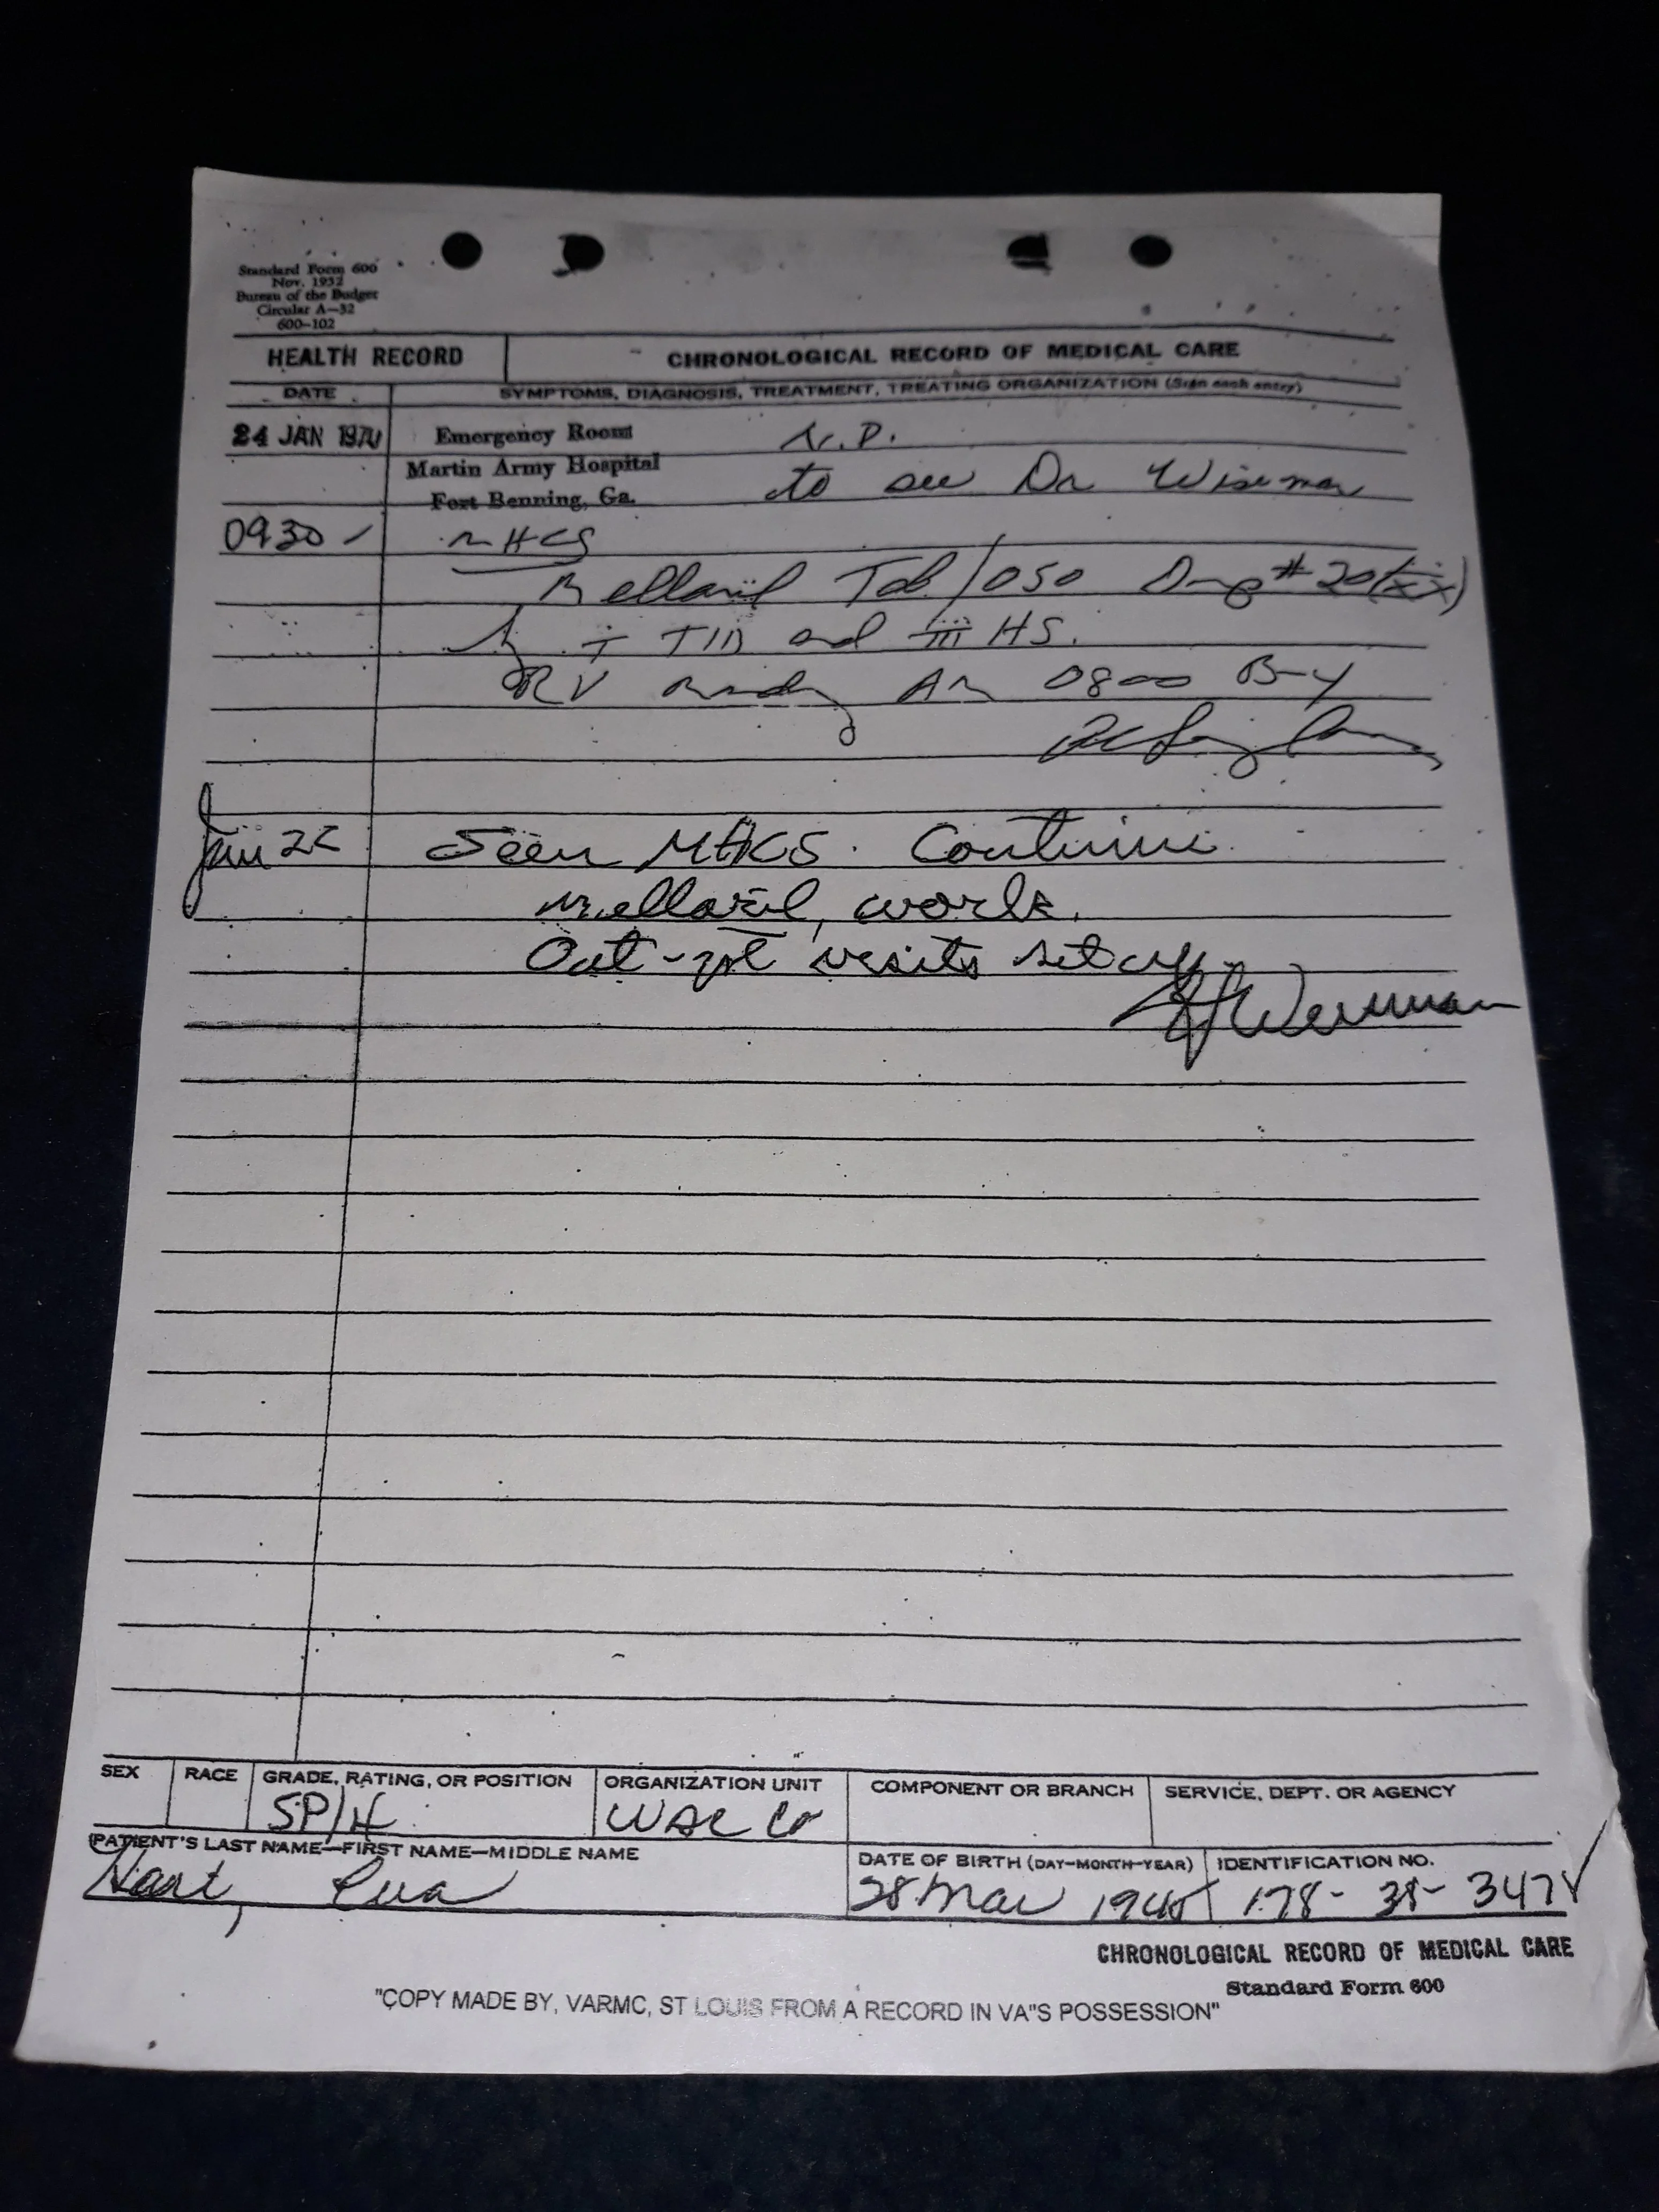 Standard Form 600
Nov. 1952
Bureau of the Budget
Circular A—32
600—102
HEALTH RECORD
CHRONOLOGICAL RECORD OF MEDICAL CARE
DATE
SYMPTOMS, DIAGNOSIS, TREATMENT, TREATING ORGANIZATION (Sign each entry)
24 JAN 1970 Emergency Room N.P.
Martin Army Hospital to see Dr Wiseman
Fort Benning, Ga.
0930 MHCS
Mellaril Tab / 050 #20 (xx)
i TID and iii HS.
RV AM 0800
Jan 26 Seen MHCS. Continue
mellaril, work.
Out-pt visits set up.
SEX
RACE
GRADE, RATING, OR POSITION
ORGANIZATION UNIT
COMPONENT OR BRANCH
SERVICE, DEPT. OR AGENCY
SP/4
WAC Co
PATIENT'S LAST NAME—FIRST NAME—MIDDLE NAME
DATE OF BIRTH (DAY—MONTH—YEAR)
IDENTIFICATION NO.
Hart, Eva
28 Mar
178-38-
CHRONOLOGICAL RECORD OF MEDICAL CARE
Standard Form 600
"COPY MADE BY, VARMC, ST LOUIS FROM A RECORD IN VA"S POSSESSION"